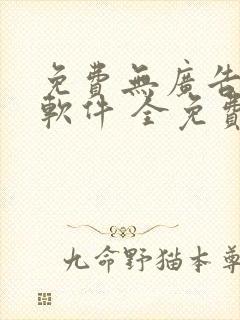 免費無廣告
軟件 全免費
九命野猫本尊